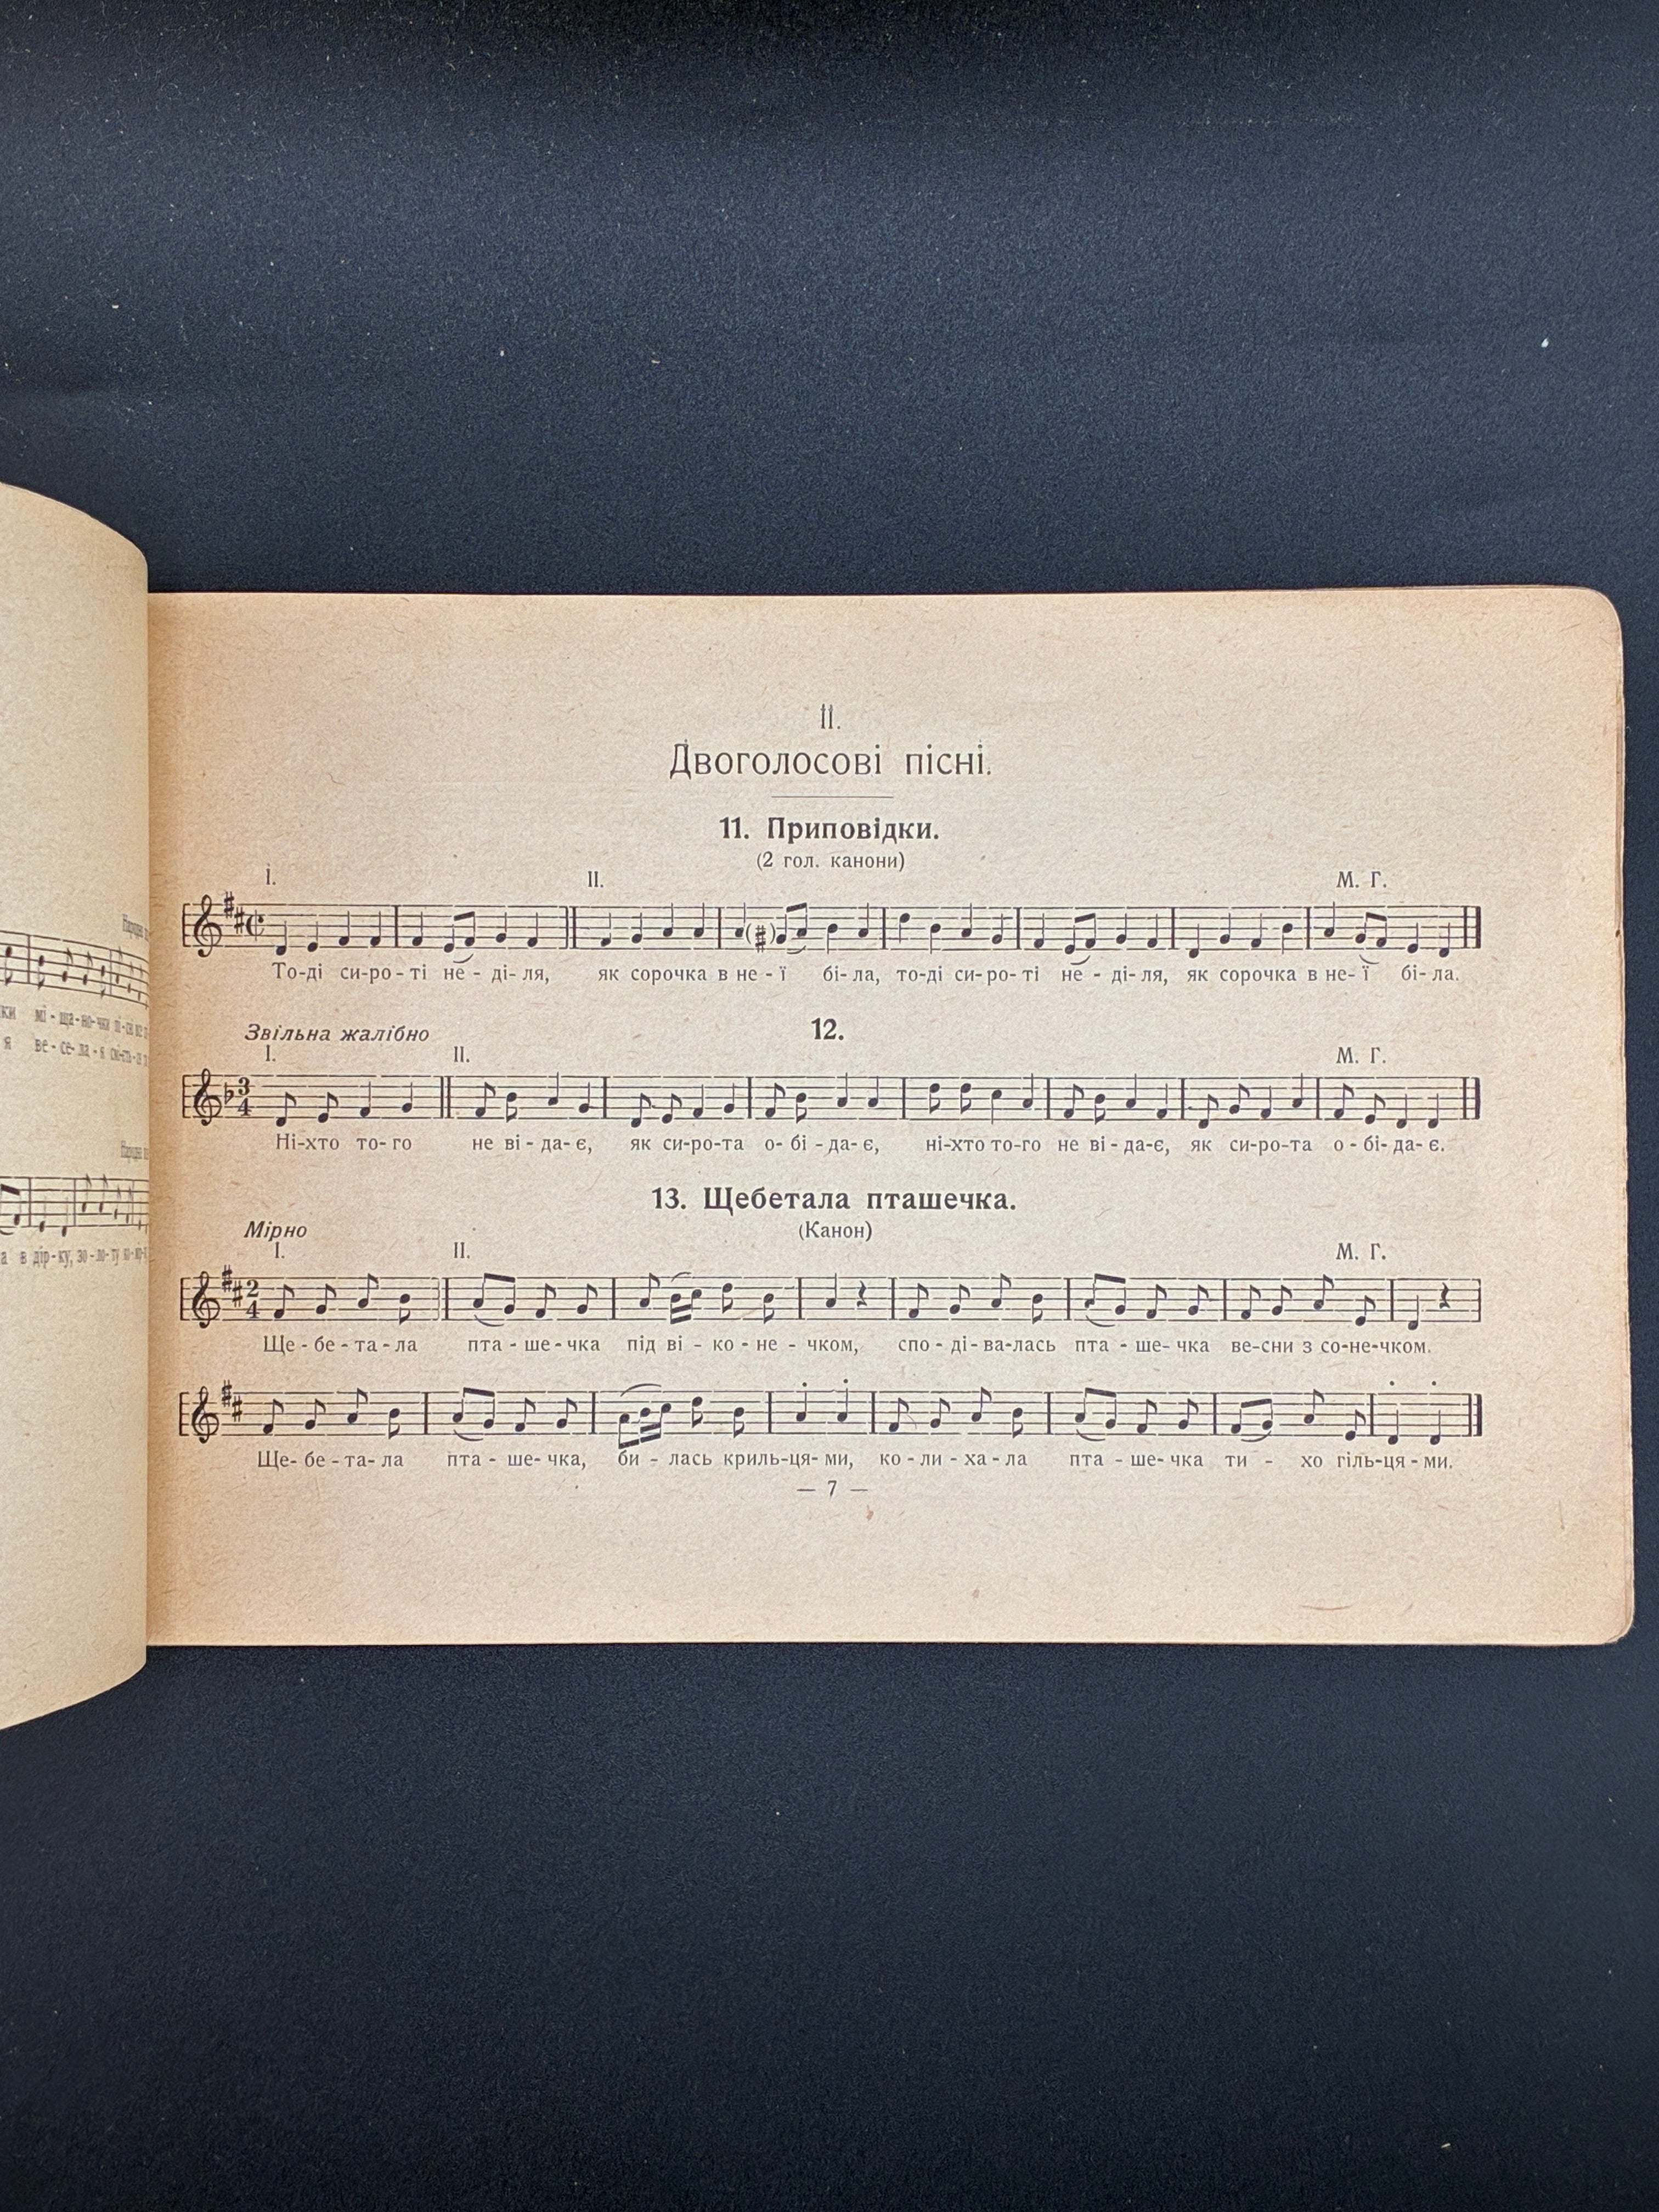 II.
Двоголосові пісні.
11. Приповідки.
(2 гол. канони)
I. II. М. Г.
То-ді си-ро-ті не-ді-ля, як сорочка в не-ї бі-ла, то-ді си-ро-ті не-ді-ля, як сорочка в не-ї бі-ла.
Звільна жалібно 12.
I. II. М. Г.
3
4
Ні-хто то-го не ві-да-є, як си-ро-та о-бі-да-є, ні-хто то-го не ві-да-є, як си-ро-та о-бі-да-є.
13. Щебетала пташечка.
Мірно (Канон)
I. II. М. Г.
2
4
Ще-бе-та-ла пта-ше-чка під ві-ко-не-чком, спо-ді-ва-лась пта-ше-чка ве-сни з со-не-чком.
Ще-бе-та-ла пта-ше-чка, би-лась криль-ця-ми, ко-ли-ха-ла пта-ше-чка ти-хо гіль-ця-ми.
— 7 —